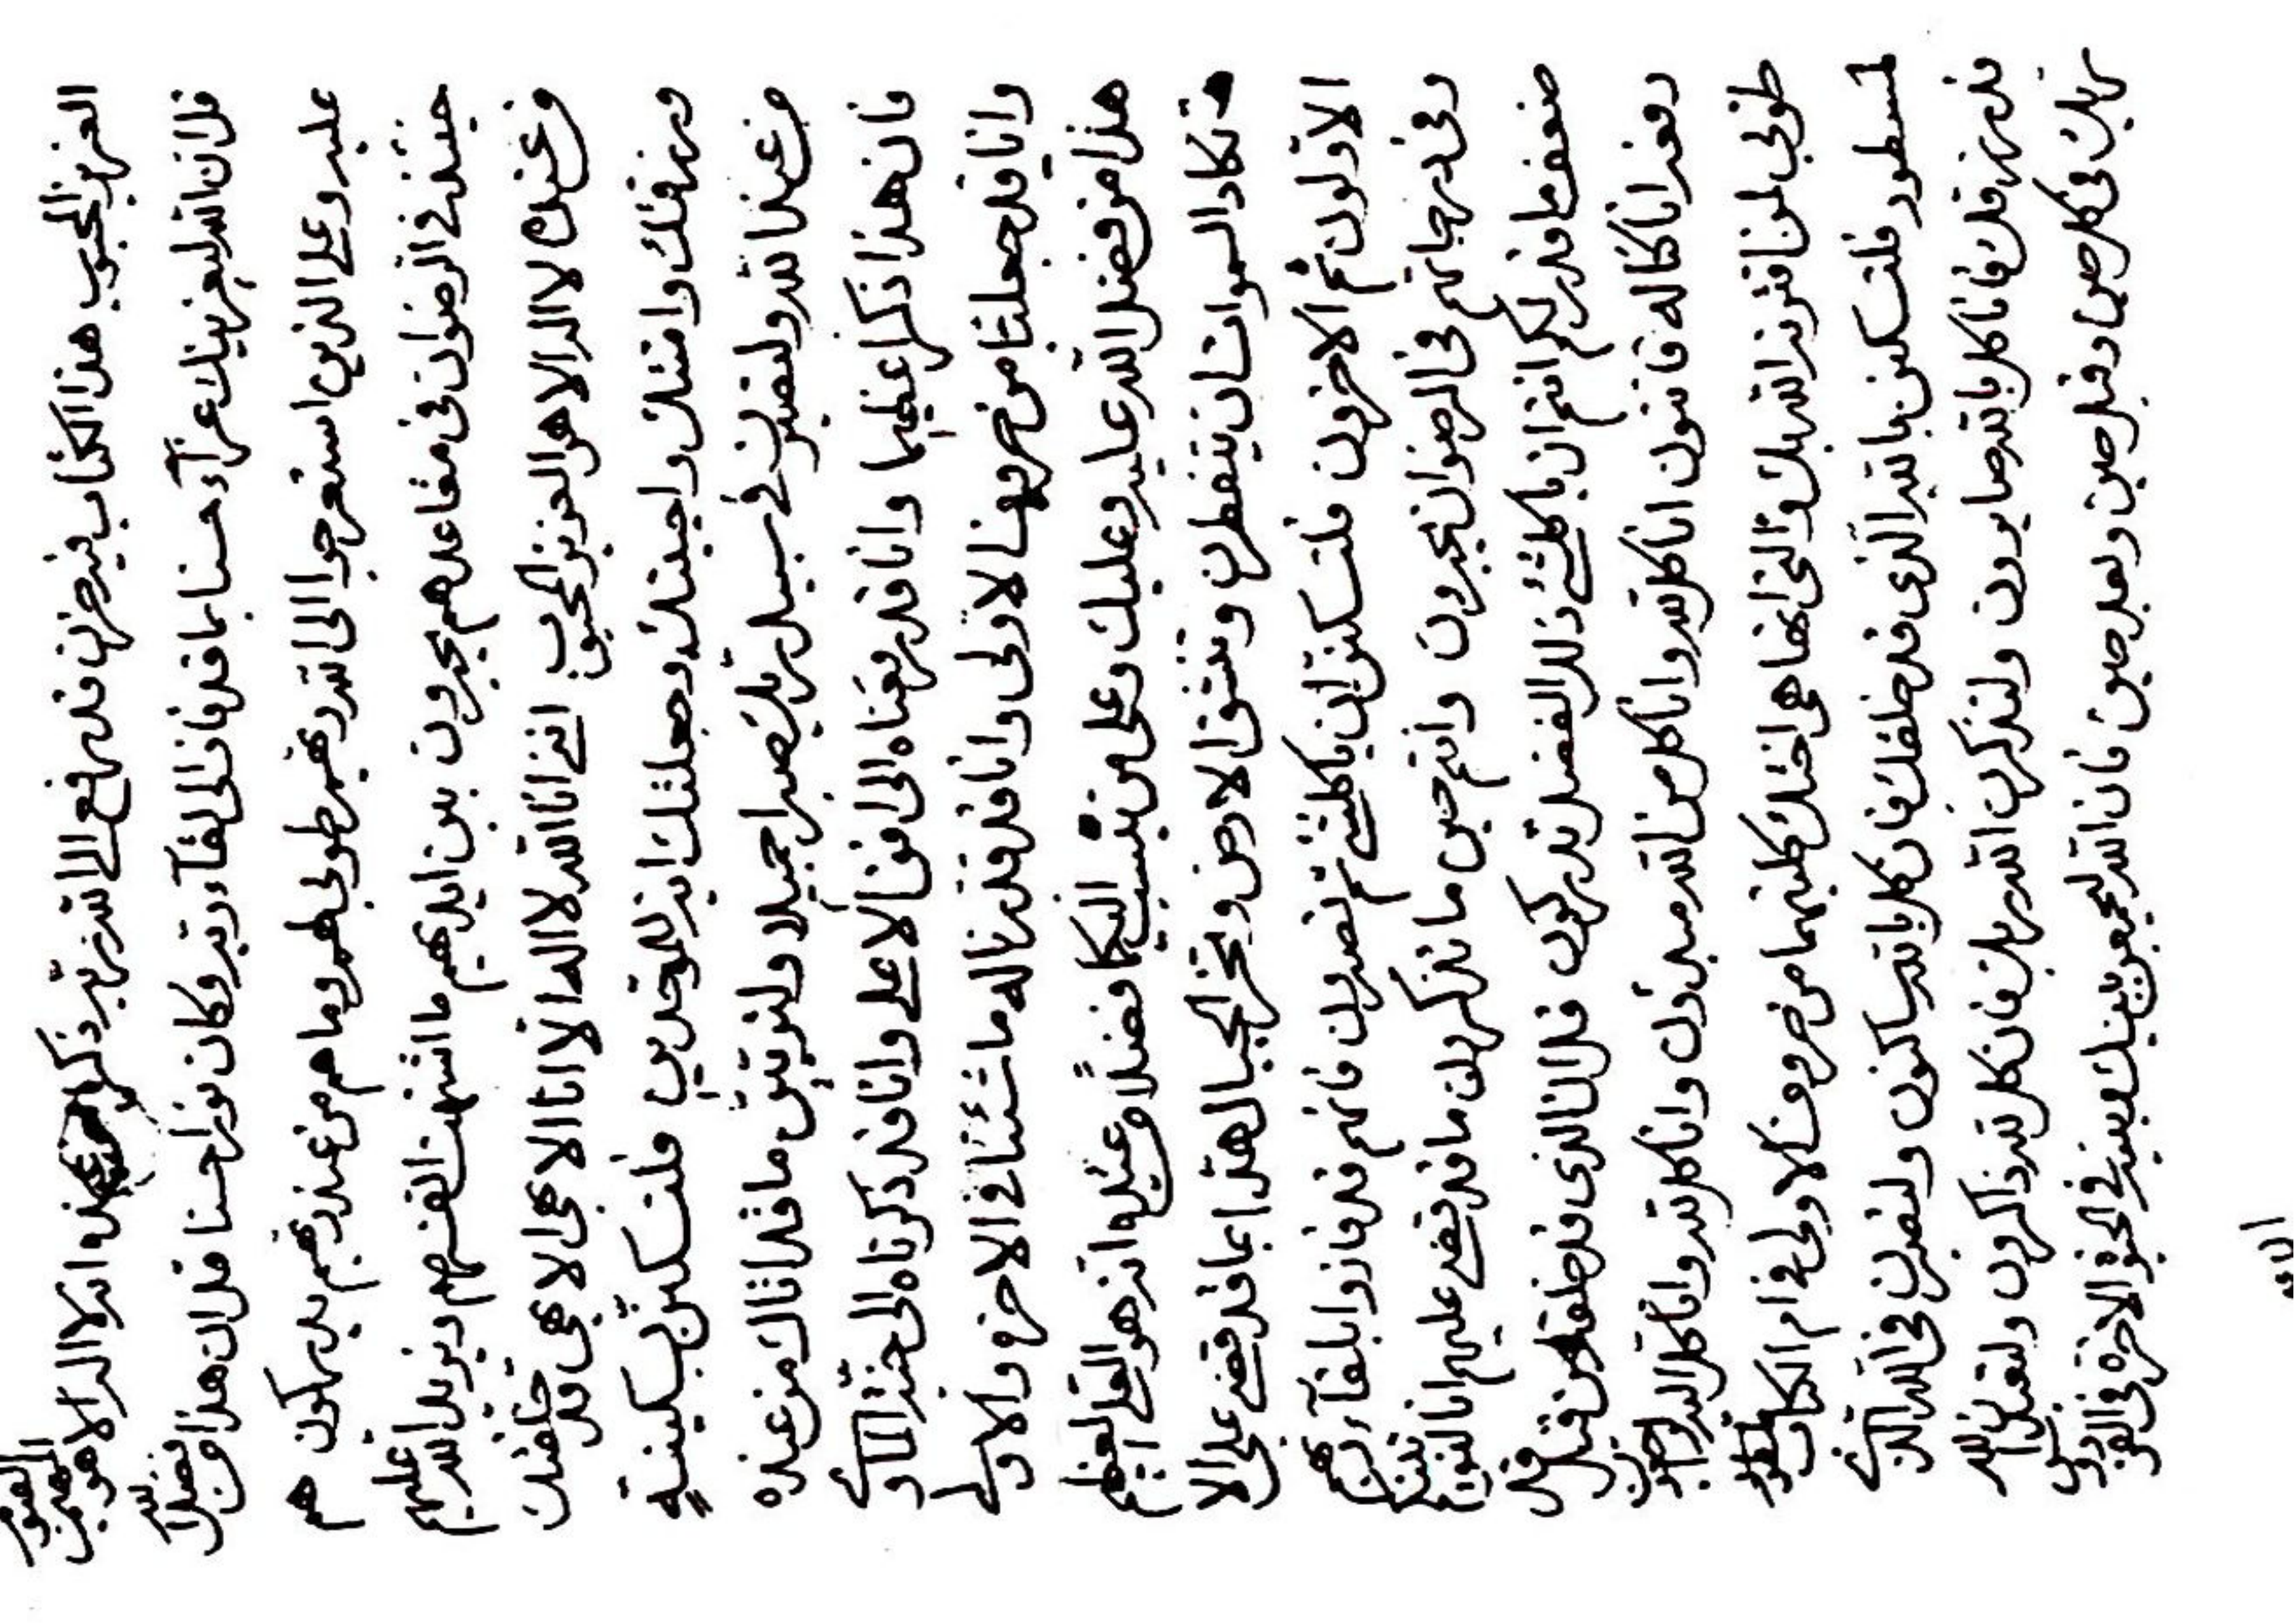 العزيز المحبوب هذا الكتاب فيه حزن قد رفع الى الله ربه ذكر من عنده انه لا اله الا هو المهيمن القيوم
قل ان الله ليعزينك عزآء حسنا بما قد فاز الى لقآء ربه وكان نورا حسنا قل ان هذا من فضل الله
عليه وعلى الذين استعرجوا الى الله ربهم طوبى لهم وما هم من عند ربهم يدركون هم
حينئذ في الرضوان في مقاعدهم يحبرون بين ايديهم ما اشتهت انفسهم ويزيد الله عليهم
من عنده لا اله الا هو العزيز المحبوب انني انا الله لا اله الا انا الاحي الاحي قد خلقتك
ورزقتك وامتك واحييتك وجعلتك اية للموحدين فلتسكنن بسكينة
من عند الله ولتصبرن في سبيل ربك صبرا جميلا ولتوتين ما قد اتاك من عنده
فان هذا ذكرا عظيما وانا قد رفعناه الى افق الاعلى وانا قد ذكرناه الى جنة الماوى
وانا قد جعلنا من حروف الاولى وانا قد قدرنا له ما شئنا في الاخرة والاولى
هذا من فضل الله عليه وعليك وعلى من ينسب اليكما فضلا من عنده انه هو العلي العظيم
تكاد السموات ان يتفطرن وتنشق الارض وتخر الجبال هدا بما قد قضى على الا
الاولون ثم الاخرون فلتسكنن ان يا كلشئ ثم تصبرون فانهم قد فازوا بلقآء ربهم
وفي درجاتهم في الرضوان يحبرون وانتم حين ما تذكرون ما قد قضى عليهم انا لنوتينكم
ضعف ما قدر لكم انتم ان يا كلشئ ذلك الفضل تدركون قل ان الذي قد خلقكم من قبل
دفعزانا كنا له قانتون انا كل لله وانا كل من الله مبدؤن وانا كل لله وانا كل اليه راجعون
طوبى لمن اقترنه الله بك والتي انها هي اختك كلتيهما من حروف الاولى في ام الكتاب
لمسطور فلتسكنن بالله الذي قد خلقك فان كل بالله ساكنون ولتصبرن في الله الذي
قد رزقك فانا كل بالله صابرون ولتذكرن الله ربك فان كل لله ذاكرون ولتعبدن الله
ربك في كل حين وقبل حين وبعد حين فان الله ليجمعن بينك وبينه في الجنة الاخرة في الفردوس